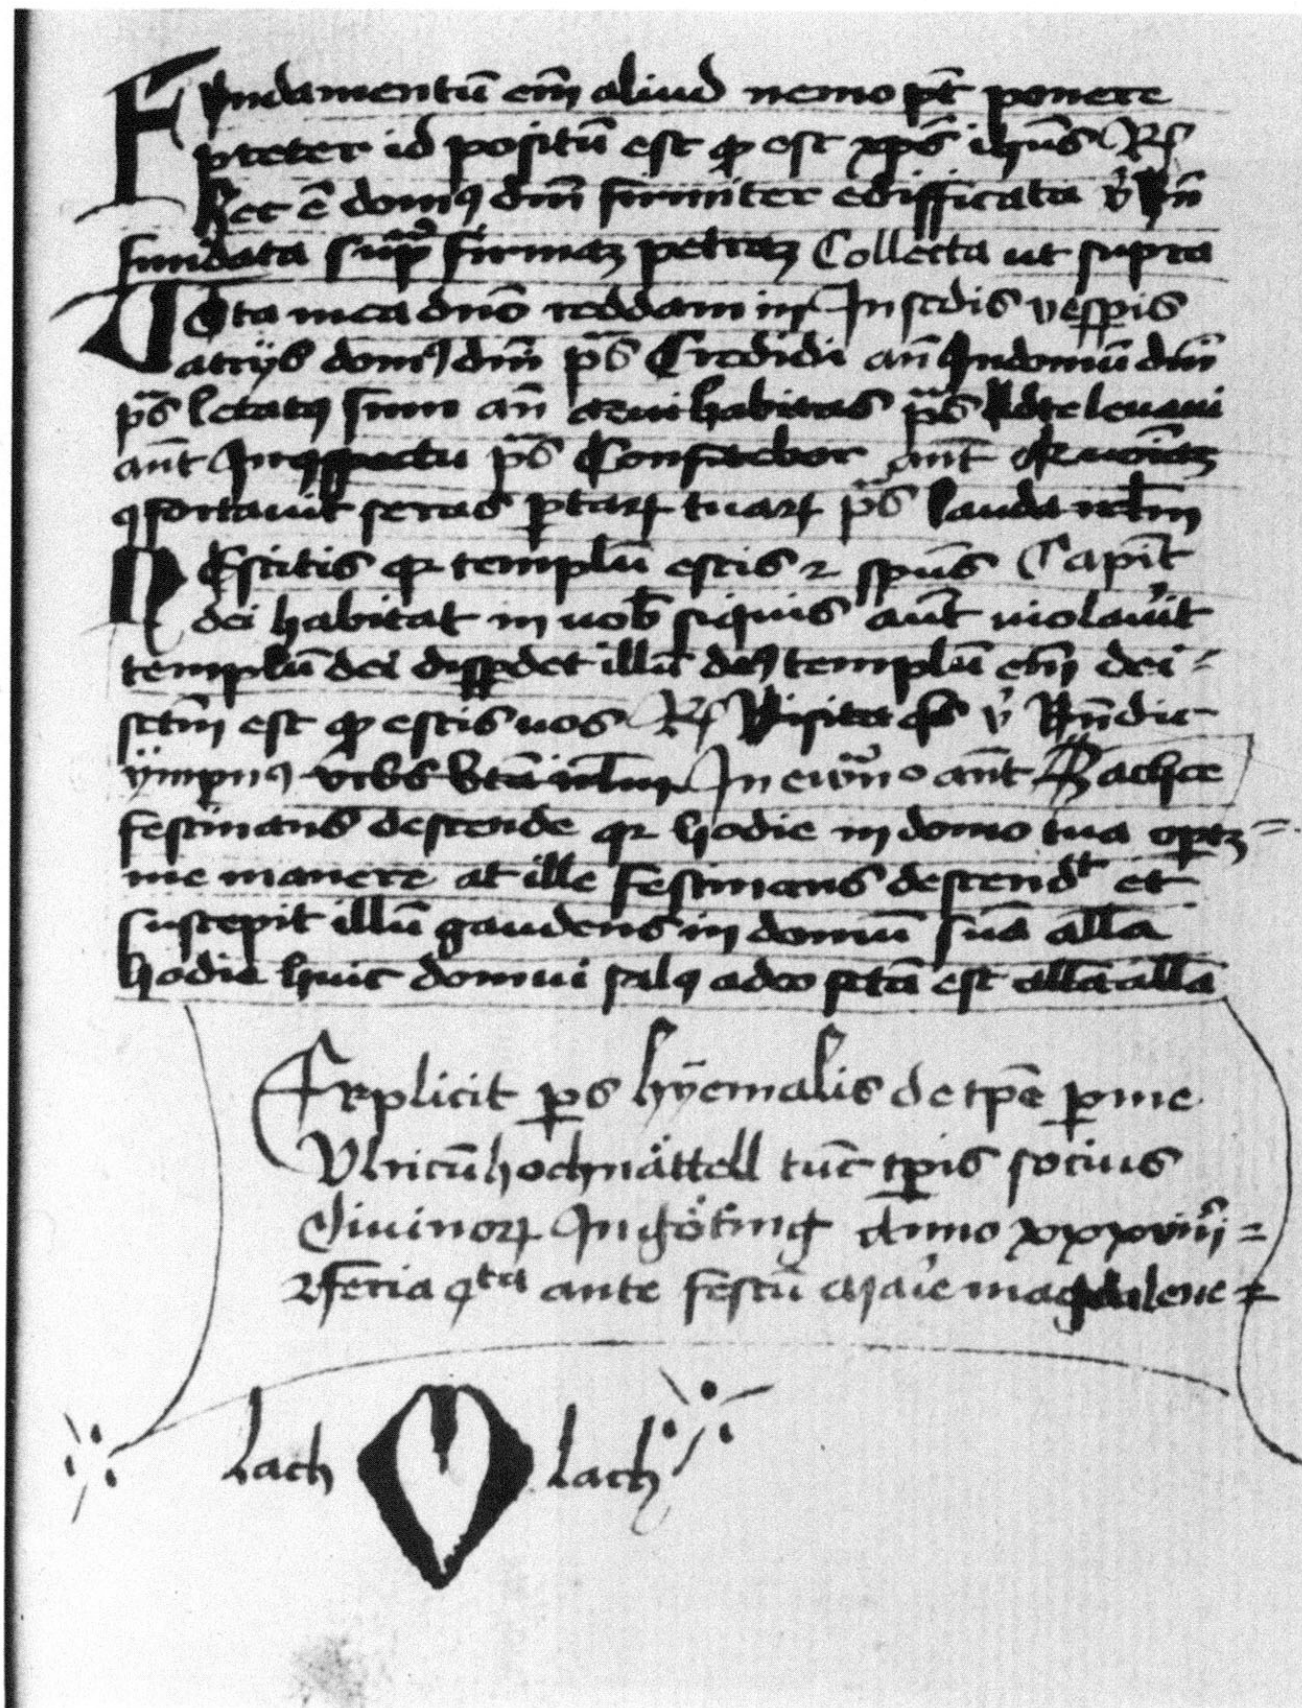 Fundamentū em̄ aliud nemo pt̄ ponere
preter id positū est qd̄ est xp̄s ih̄us R͂
hec ē domꝰ dn̄i firmiter edifficata v̉ Bn̄
fundata sup̄ firmaz petraz Collecta ut supra
Vota mea dn̄o reddam in In scdis vesp̲is
atrijs domꝰ dn̄i p̄s Credidi an̄ In domū dn̄i
p̄s letatꝰ sum an̄ habitas p̄s Ad te levavi
an̄t In p̄s Confitebor an̄t
ꝯfortavit seras portarꝝ tuarꝝ p̄s lauda
Nescitis qꝛ templū estis ⁊ sp̄us Capit̄
dei habitat in vob̄ siquis aūt violav̓it
templū dei disp̲det illū dꝰ templū em̄ dei =
sct̄m est qd̄ estis vos R͂ Visitet v̉ Bn̄dic
ympnꝰ vrbs bt̄ā In ewāo an̄t Zachee
festinans descende qꝛ hodie in domo tua oportz =
me manere at ille festinans descendt et
suscepit illū gaudens in domū suā all̄a
hodie huic domui salꝰ a deo fctā est all̄a all̄a
Explicit p̲s hyemalis de tp̄e p̲ me
Vlricū hochnättell tūc tp̲is socius
divinorꝝ In göting Anno xxxviiii =
⁊ feria qta ante festū Marie magdalene ⁊
lach lach